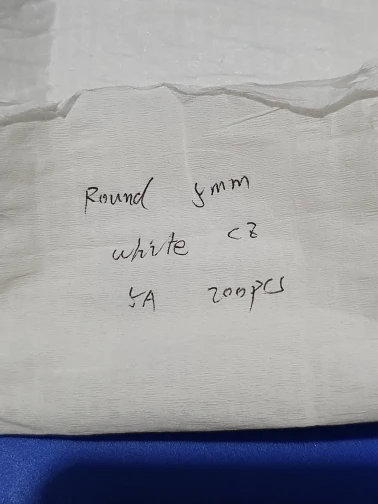 Round 5mm
white CZ
5A 200pcs